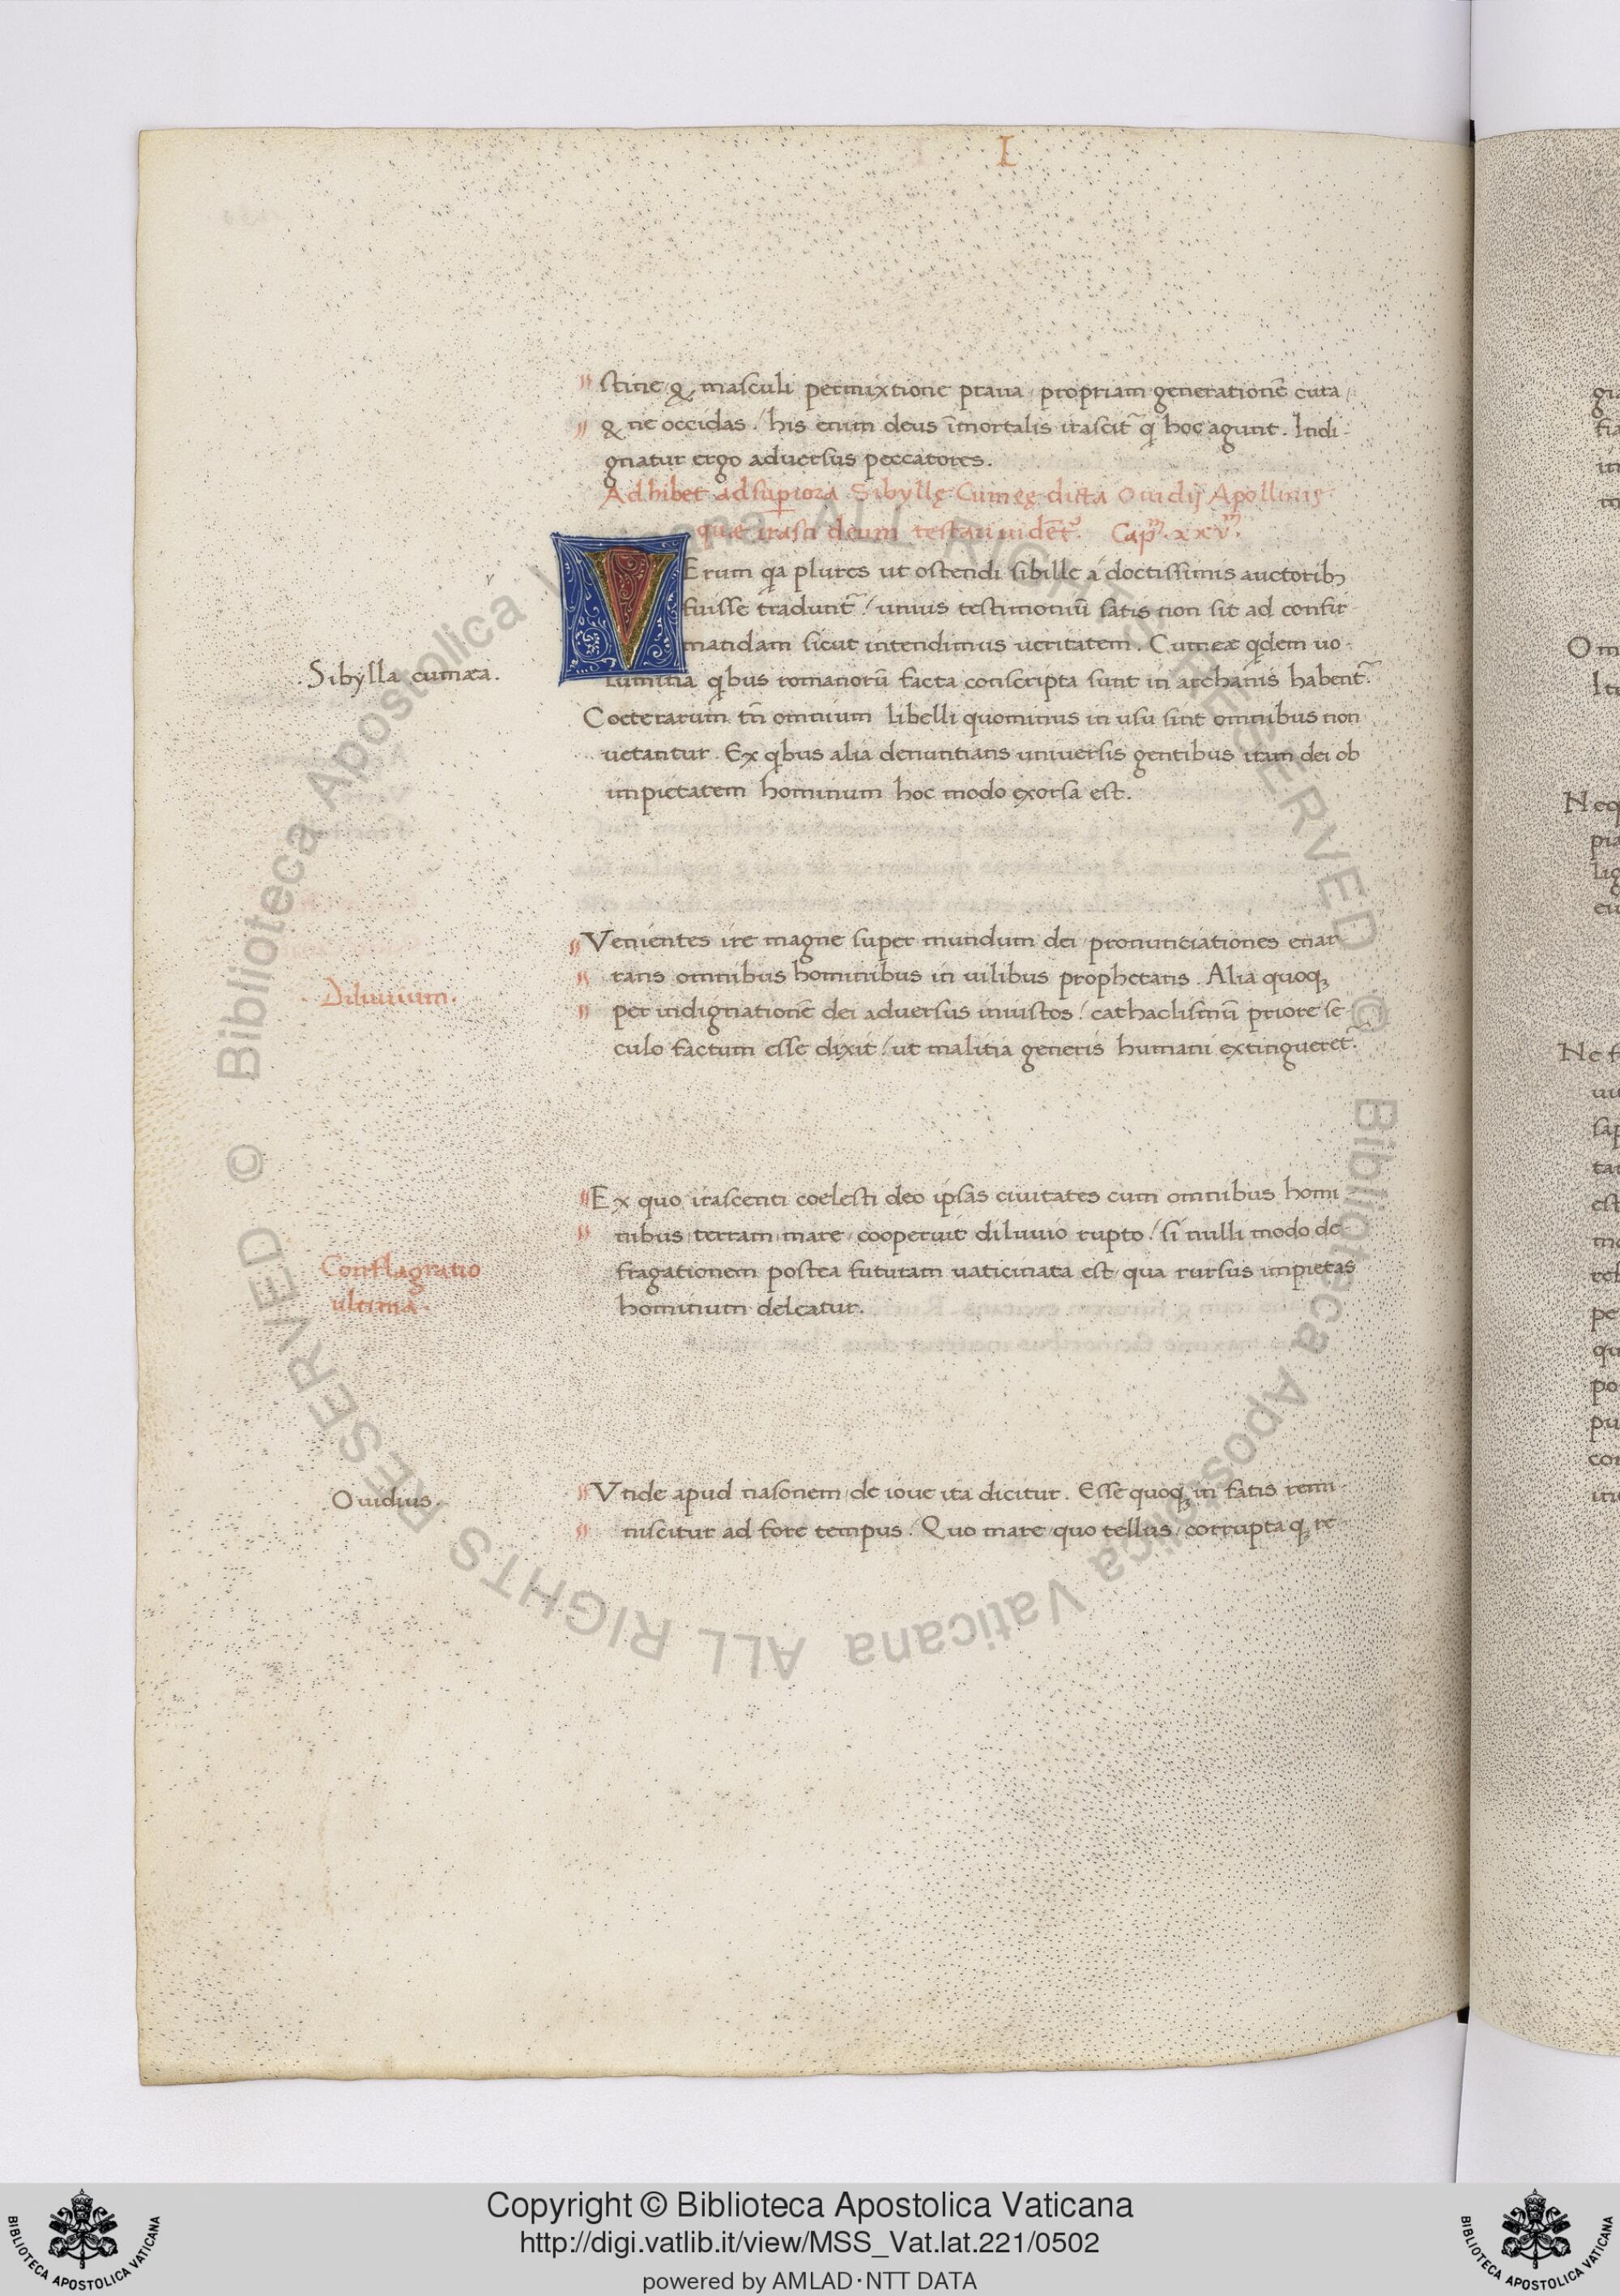 I
stine & masculi permixtione praua, propriam generationē cura,
& ne occidas, his enim deus īmortalis irascit̄ q̄ hoc agunt. Indi-
gnatur ergo aduersus peccatores.
Adhibet ad superiora Sibyllę Cumeę dicta Ouidij Apollinis
quae irasci deum testari uidēt᷑. Cap.m xxv.m
VErum qa plures ut ostendi sibille a doctissimis auctorib;
fuisse tradunt̄, unius testimoniū satis non sit ad confir
mandam sicut intendimus ueritatem. Cumeæ qdem uo-
Sibylla cumæa.
lumina qbus romanorū facta conscripta sunt in archanis habent̄.
Coeterarum tn̄ omnium libelli quominus in usu sint omnibus non
uetantur. Ex qbus alia denuntians uniuersis gentibus iram dei ob
impietatem hominum hoc modo exorsa est.
Venientes ire magne super mundum dei pronunciationes enar
rans omnibus hominibus in uilibus prophetans. Alia quoq;
Diluuium.
per indignationē dei aduersus iniustos, cathaclismū priore se
culo factum esse dixit, ut malitia generis humani extingueret̄.
Ex quo irascenti coelesti deo ipsas ciuitates cum omnibus homi
nibus, terram, mare, cooperuit diluuio rupto, si nulli modo de
Conflagratio
fragationem postea futuram uaticinata est, qua rursus impietas
ultima.
hominum deleatur.
Ouidius.
Vnde apud nasonem, de ioue ita dicitur. Esse quoq; in fatis remi
niscitur ad fore tempus, Quo mare, quo tellus, correptaq; re
Copyright © Biblioteca Apostolica Vaticana
http://digi.vatlib.it/view/MSS_Vat.lat.221/0502
powered by AMLAD·NTT DATA
BIBLIOTECA APOSTOLICA VATICANA
BIBLIOTECA APOSTOLICA VATICANA